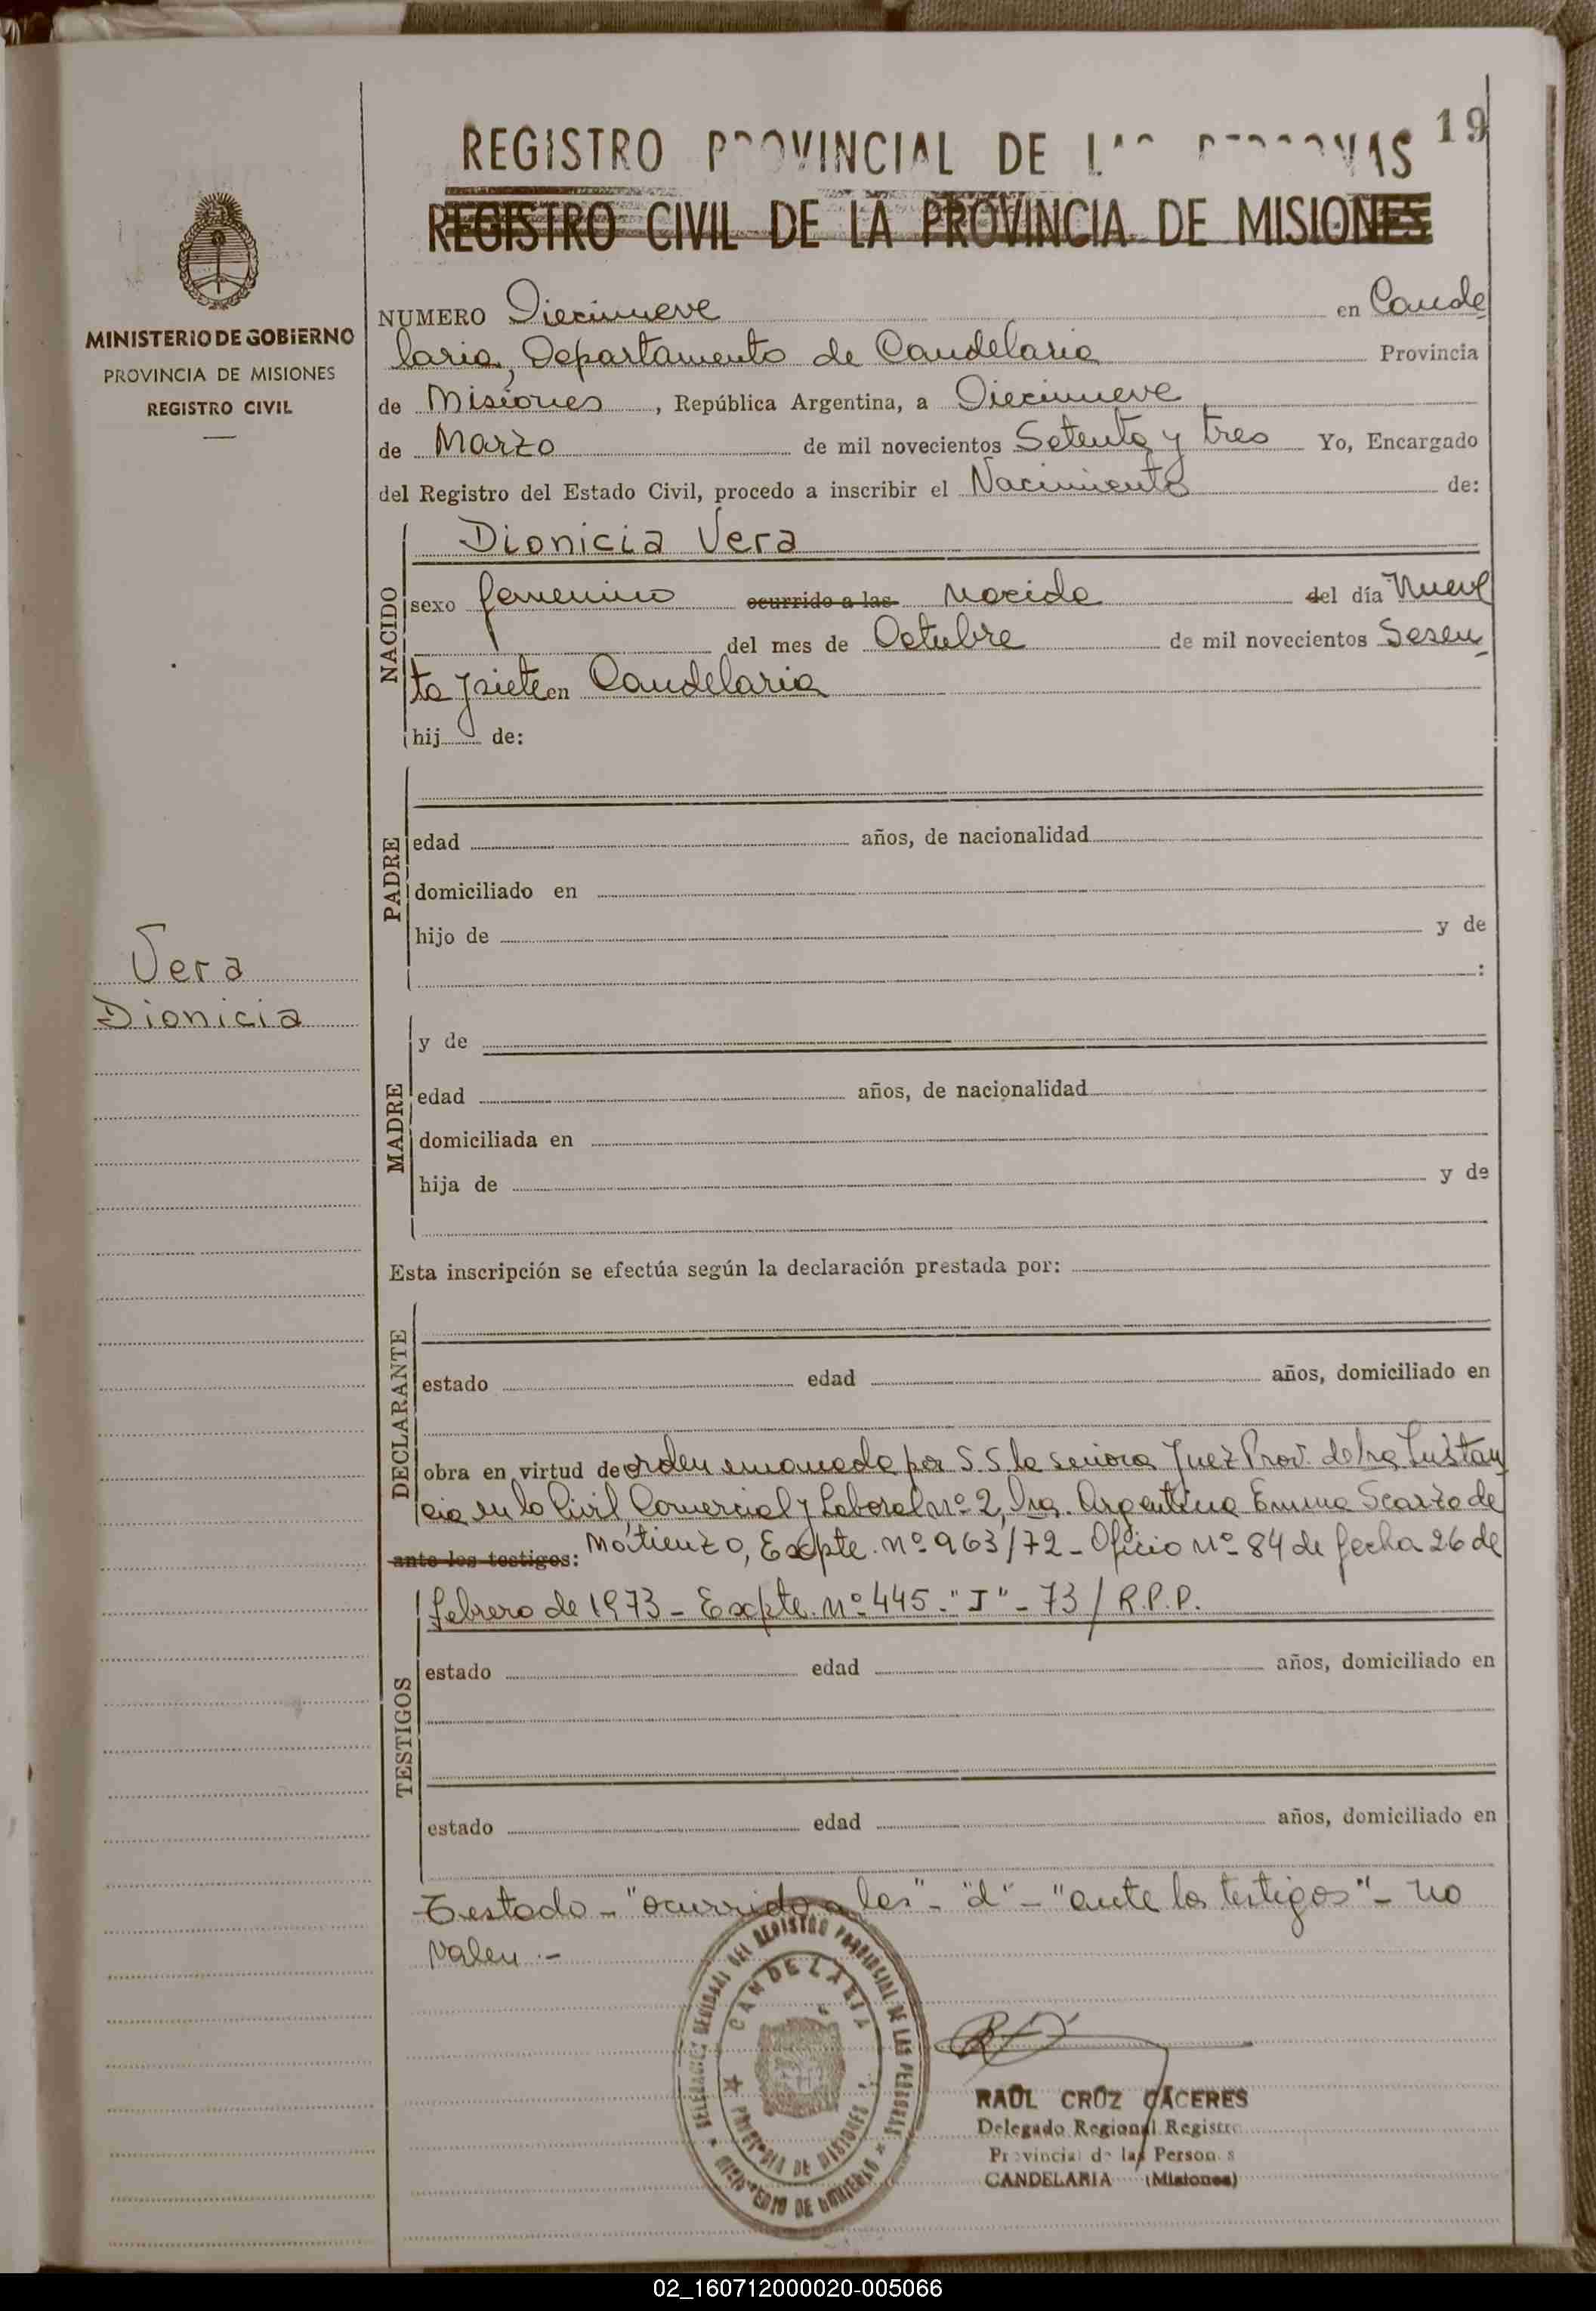 19
REGISTRO PROVINCIAL DE LAS PERSONAS
REGISTRO CIVIL DE LA PROVINCIA DE MISIONES
MINISTERIO DE GOBIERNO
PROVINCIA DE MISIONES
REGISTRO CIVIL
NUMERO Diecinueve en Cande
laria, Departamento de Candelaria Provincia
de Misiones, República Argentina, a Diecinueve
de Marzo de mil novecientos Setenta y tres Yo, Encargado
del Registro del Estado Civil, procedo a inscribir el Nacimiento de:
NACIDO
Dionicia Vera
sexo femenino ocurrido a las nacida del día Nueve
del mes de Octubre de mil novecientos Sesen
ta y siete en Candelaria
hij de:
PADRE
edad años, de nacionalidad
domiciliado en
hijo de y de
:
Vera
Dionicia
MADRE
y de
edad años, de nacionalidad
domiciliada en
hija de y de
Esta inscripción se efectúa según la declaración prestada por:
DECLARANTE
estado edad años, domiciliado en
obra en virtud de orden emanada por S.S. la señora Juez Prov. de 1ra Instan
cia en lo Civil, Comercial y Laboral nº 2, Dra. Argentina Emma Scarzo de
ante los testigos: Matienzo, Expte. nº 963/72 - Oficio Nº 84 de fecha 26 de
febrero de 1973 - Expte. nº 445 - "J" - 73 / R.P.P.
TESTIGOS
estado edad años, domiciliado en
estado edad años, domiciliado en
Testado - "ocurrido a las" - "d" - "ante los testigos" - no
valen .-
DELEGACION REGIONAL DEL REGISTRO PROVINCIAL DE LAS PERSONAS
CANDELARIA
PROVINCIA DE MISIONES
MINISTERIO DE GOBIERNO
RAUL CRUZ CACERES
Delegado Regional Registro
Provincial de las Personas
CANDELARIA (Misiones)
02_160712000020-005066